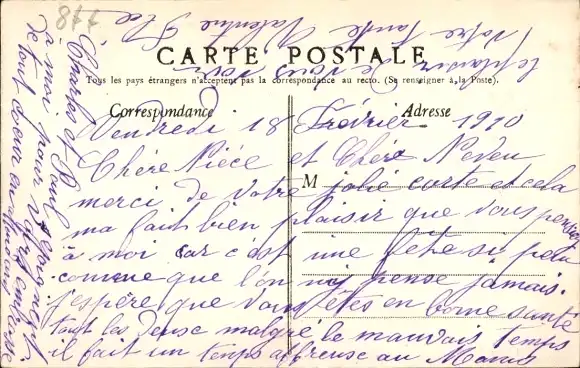 877
CARTE POSTALE
Tous les pays étrangers n'acceptent pas la correspondance au recto. (Se renseigner à la Poste).
Correspondance
Adresse
M
Vendredi 18 Frévrier 1910
Chère Nièce et Cher Neveu
merci de votre jolie carte et cela
ma fait bien plaisir que vous pensiez
à moi car c'est une fête si peu
comune que l'on n'y pense jamais.
J'espère que vous êtes en bonne santé
tout les deuse malgré le mauvais temps
il fait un temps affreuse au Mans
Charles et Paul se joignent
à moi pour vous embrasser
de tout coeur en attendant
le plaisir de vous voir
votre Tante Valentine